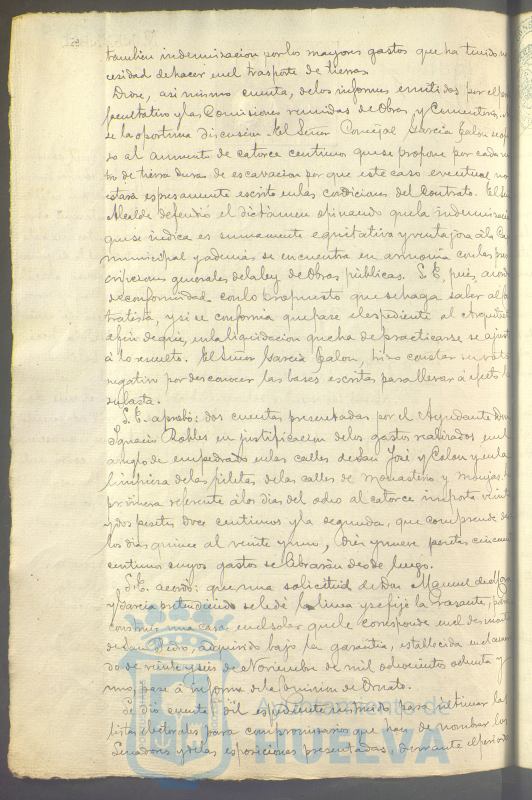 tambien indemnizacion por los mayores gastos que ha tenido ne
cesidad de hacer en el trasporte de tierras
Diose, asi mismo cuenta, de los informes emitidos por el
facultativo y las Comisiones reunidas de Obras y Cementerios,
se la oportuna discusion. El Señor Concejal Garcia Galon se opu
so al aumento de catorce centimos que se propone por cada me
tro de tierra dura de escavacion por que este caso eventual no
estará espresamente escrito en las condiciones del Contrato. El Sr.
Alcalde defendió el dictámen opinando que la indemnizacion
que se indica es sumamente equitativa y ventajosa á la Caja
municipal y además se encuentra en armonia con las pres
cripciones generales de la ley de Obras públicas. S. E. pues, acordó
de conformidad con lo propuesto que se haga saber al con
tratista, y si se conforma que pase el espediente al Arquitecto
a fin de que, en la liquidacion que ha de practicarse se ajuste
á lo resuelto. El Señor Garcia Galon, hizo constar su voto
negativo por desconocer las bases escritas para llevar á efecto la
subasta.
S. E. aprobó: dos cuentas presentadas por el Ayudante Don
Ignacio Robles en justificacion de los gastos realizados en el
arreglo de empedrado en las calles de San José y Colon y en la
limpieza de las piletas de las calles de Monasterio y Monjas. La
primera referente á los dias del ocho al catorce importa veinte
y dos pesetas doce centimos y la segunda, que comprende de
los dias quince al veinte y uno, diez y nueve pesetas cincuenta
centimos cuyos gastos se librarán desde luego.
S. E. acordó: que una solicitud de Don Manuel de Mora
y Garcia pretendiendo se le dé la linea y se fije la rasante, para
construir una casa en el solar que le corresponde en el de
de San Pedro, adquirido bajo la garantia, establecida en el acuer
do de veinte y seis de Noviembre de mil ochocientos ochenta y
uno, pase á informe de la Comision de Ornato.
Se dió cuenta del espediente instruido para ultimar las
listas electorales para compromisarios que han de nombrar los
Senadores y de las esposiciones presentadas, durante el periodo
Ayuntamiento de
HUELVA